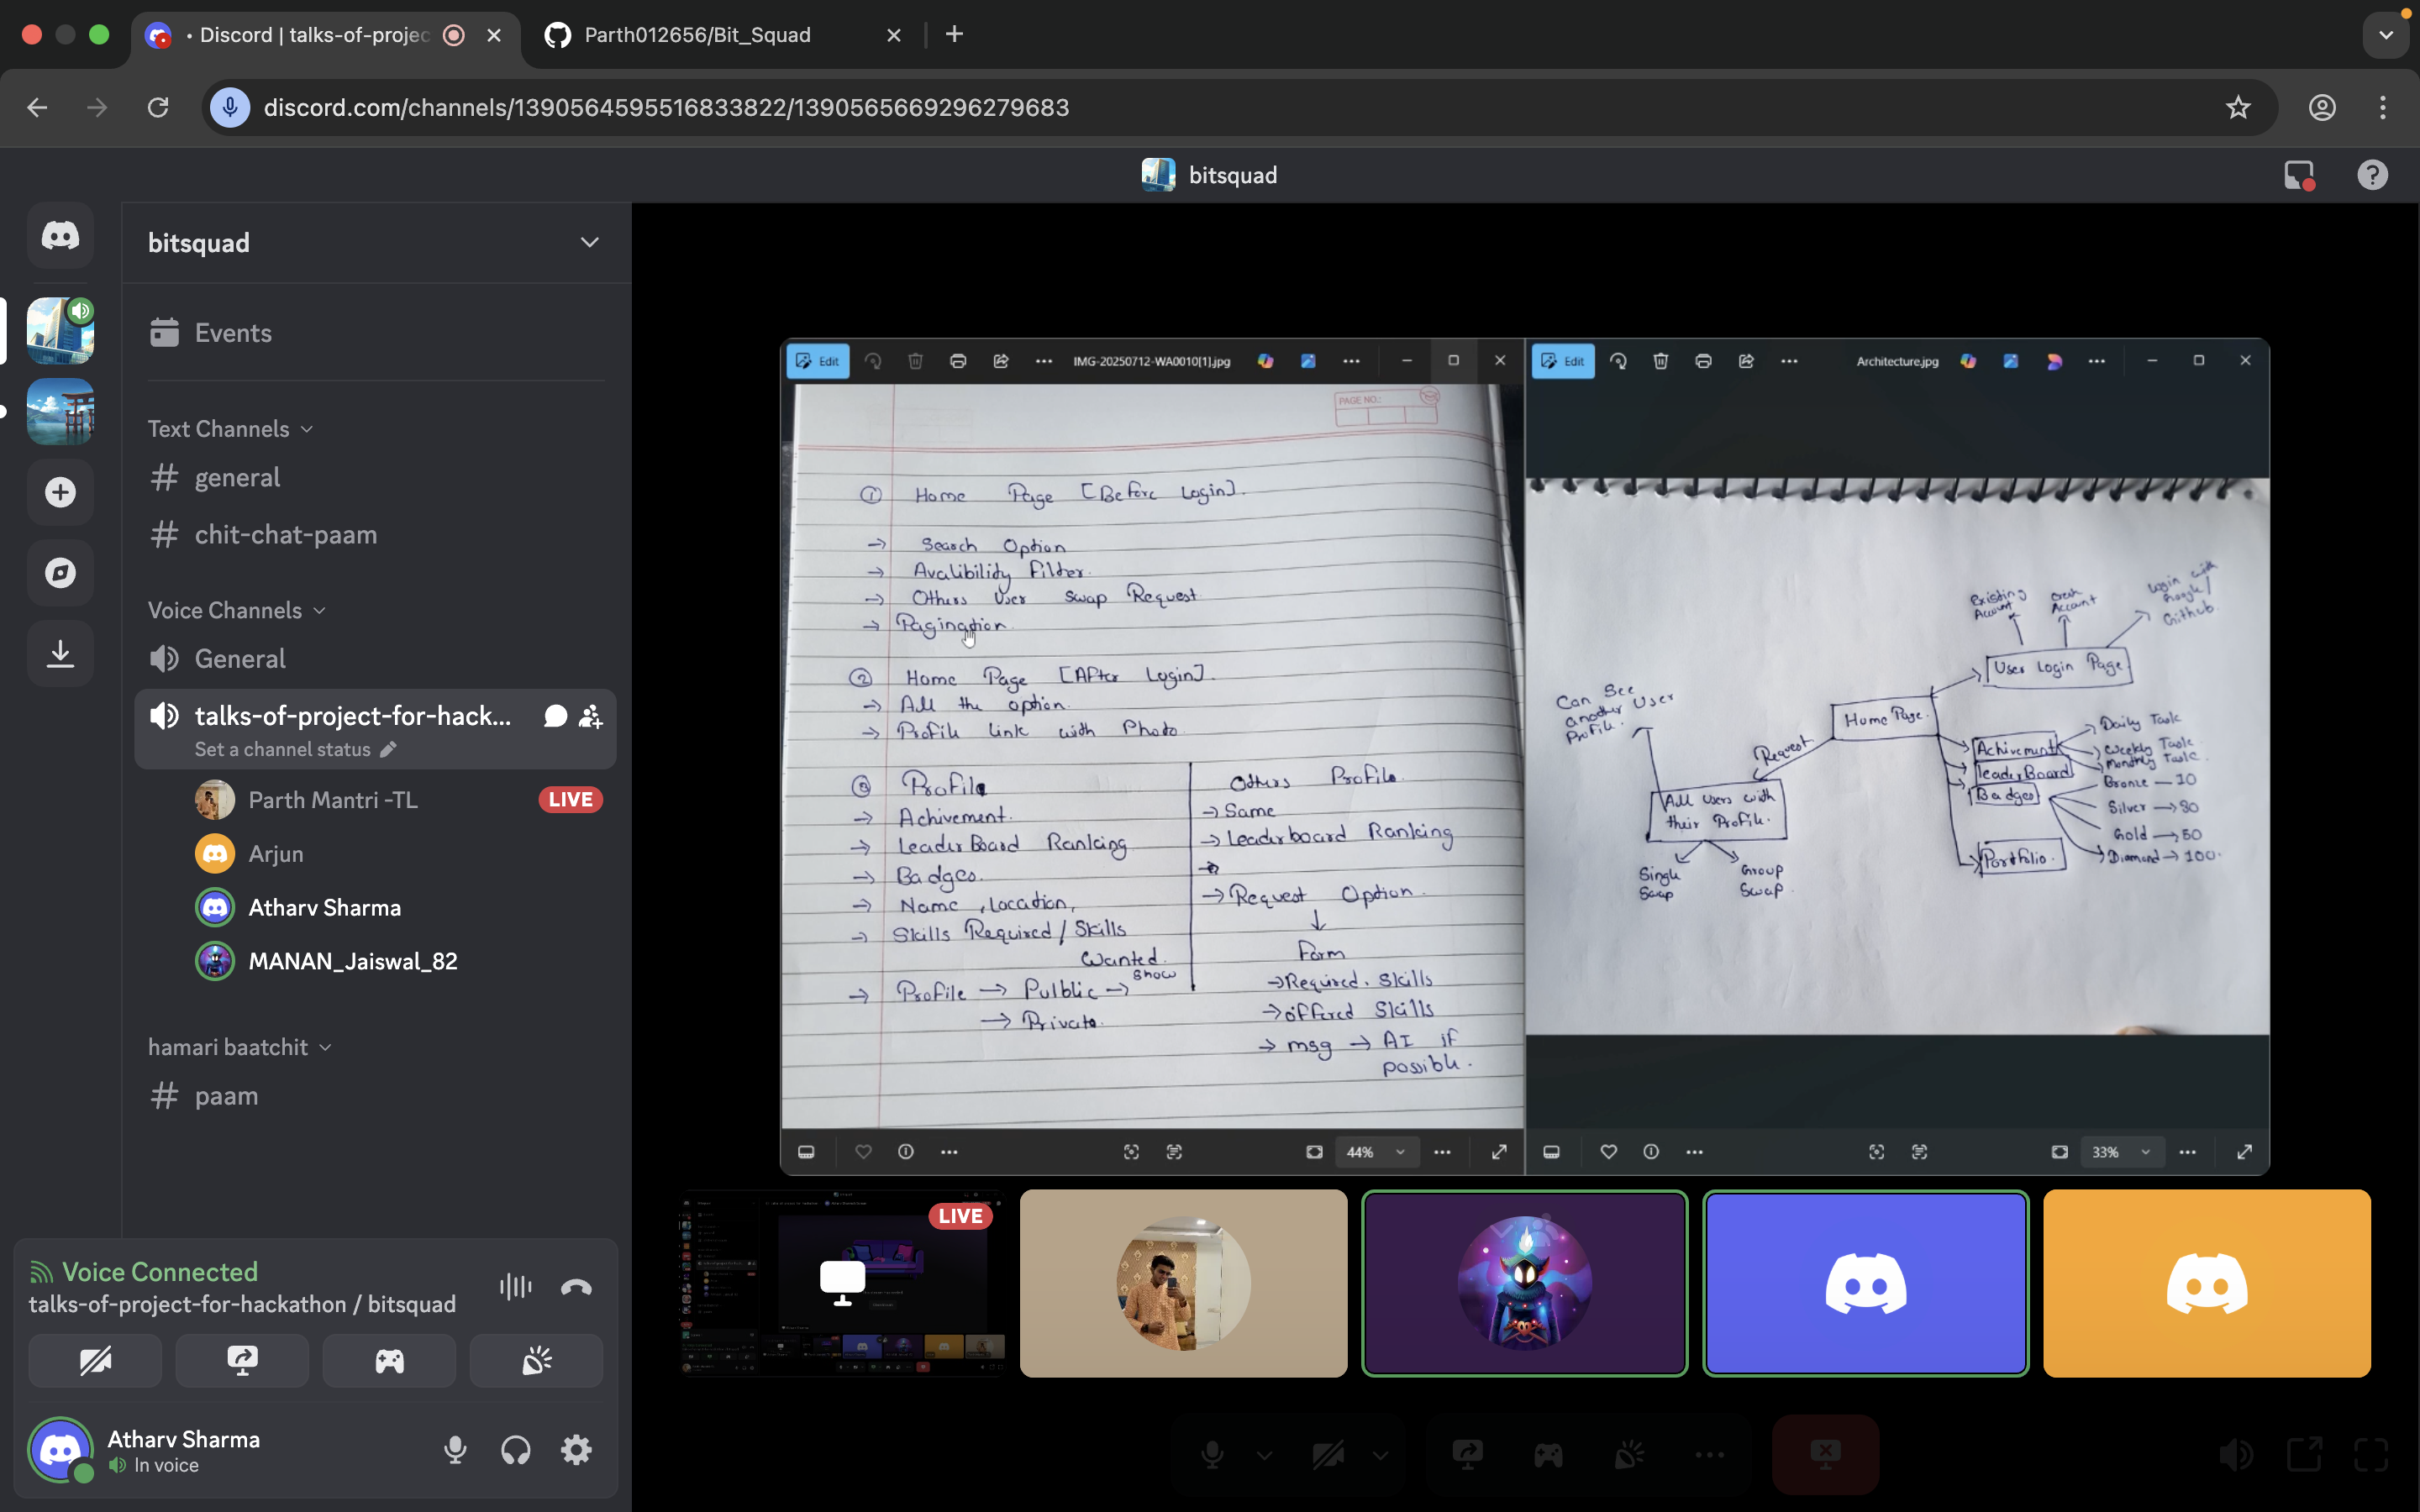 • Discord | talks-of-projec
Parth012656/Bit_Squad
discord.com/channels/1390564595516833822/1390565669296279683
bitsquad
bitsquad
Events
Text Channels
general
chit-chat-paam
Voice Channels
General
talks-of-project-for-hack...
Set a channel status
Parth Mantri -TL
LIVE
Arjun
Atharv Sharma
MANAN_Jaiswal_82
hamari baatchit
paam
Voice Connected
talks-of-project-for-hackathon / bitsquad
Atharv Sharma
In voice
Edit
IMG-20250712-WA0010[1].jpg
PAGE NO.:
① Home Page [Before Login].
→ Search Option
→ Avalibility Filter.
→ Others User Swap Request
→ Pagination.
② Home Page [After Login].
→ All the option.
→ Profile link with Photo
③ Profile
→ Achivement.
→ LeaderBoard Ranking
→ Badges.
→ Name, Location,
→ Skills Required / Skills
Wanted.
→ Profile → Pulblic → show
→ Private.
Others Profile.
→ Same
→ Leaderboard Ranking
→
→ Request Option.
↓
Form
→ Required. Skills
→ offered Skills
→ msg → AI if
possible.
44%
Edit
Architecture.jpg
Existing
Account
Creat
Account
Login with
Google/
Github.
User Login Page
Can See
another User
Profile.
Home Page.
Request
Achivement
Daily Task
Weekly Task
Monthly Task.
LeaderBoard
Badges
Bronze — 10
Silver → 30
Gold → 50
Diamond → 100.
Portfolio.
All Users with
their Profile.
Single
Swap
Group
Swap.
33%
LIVE